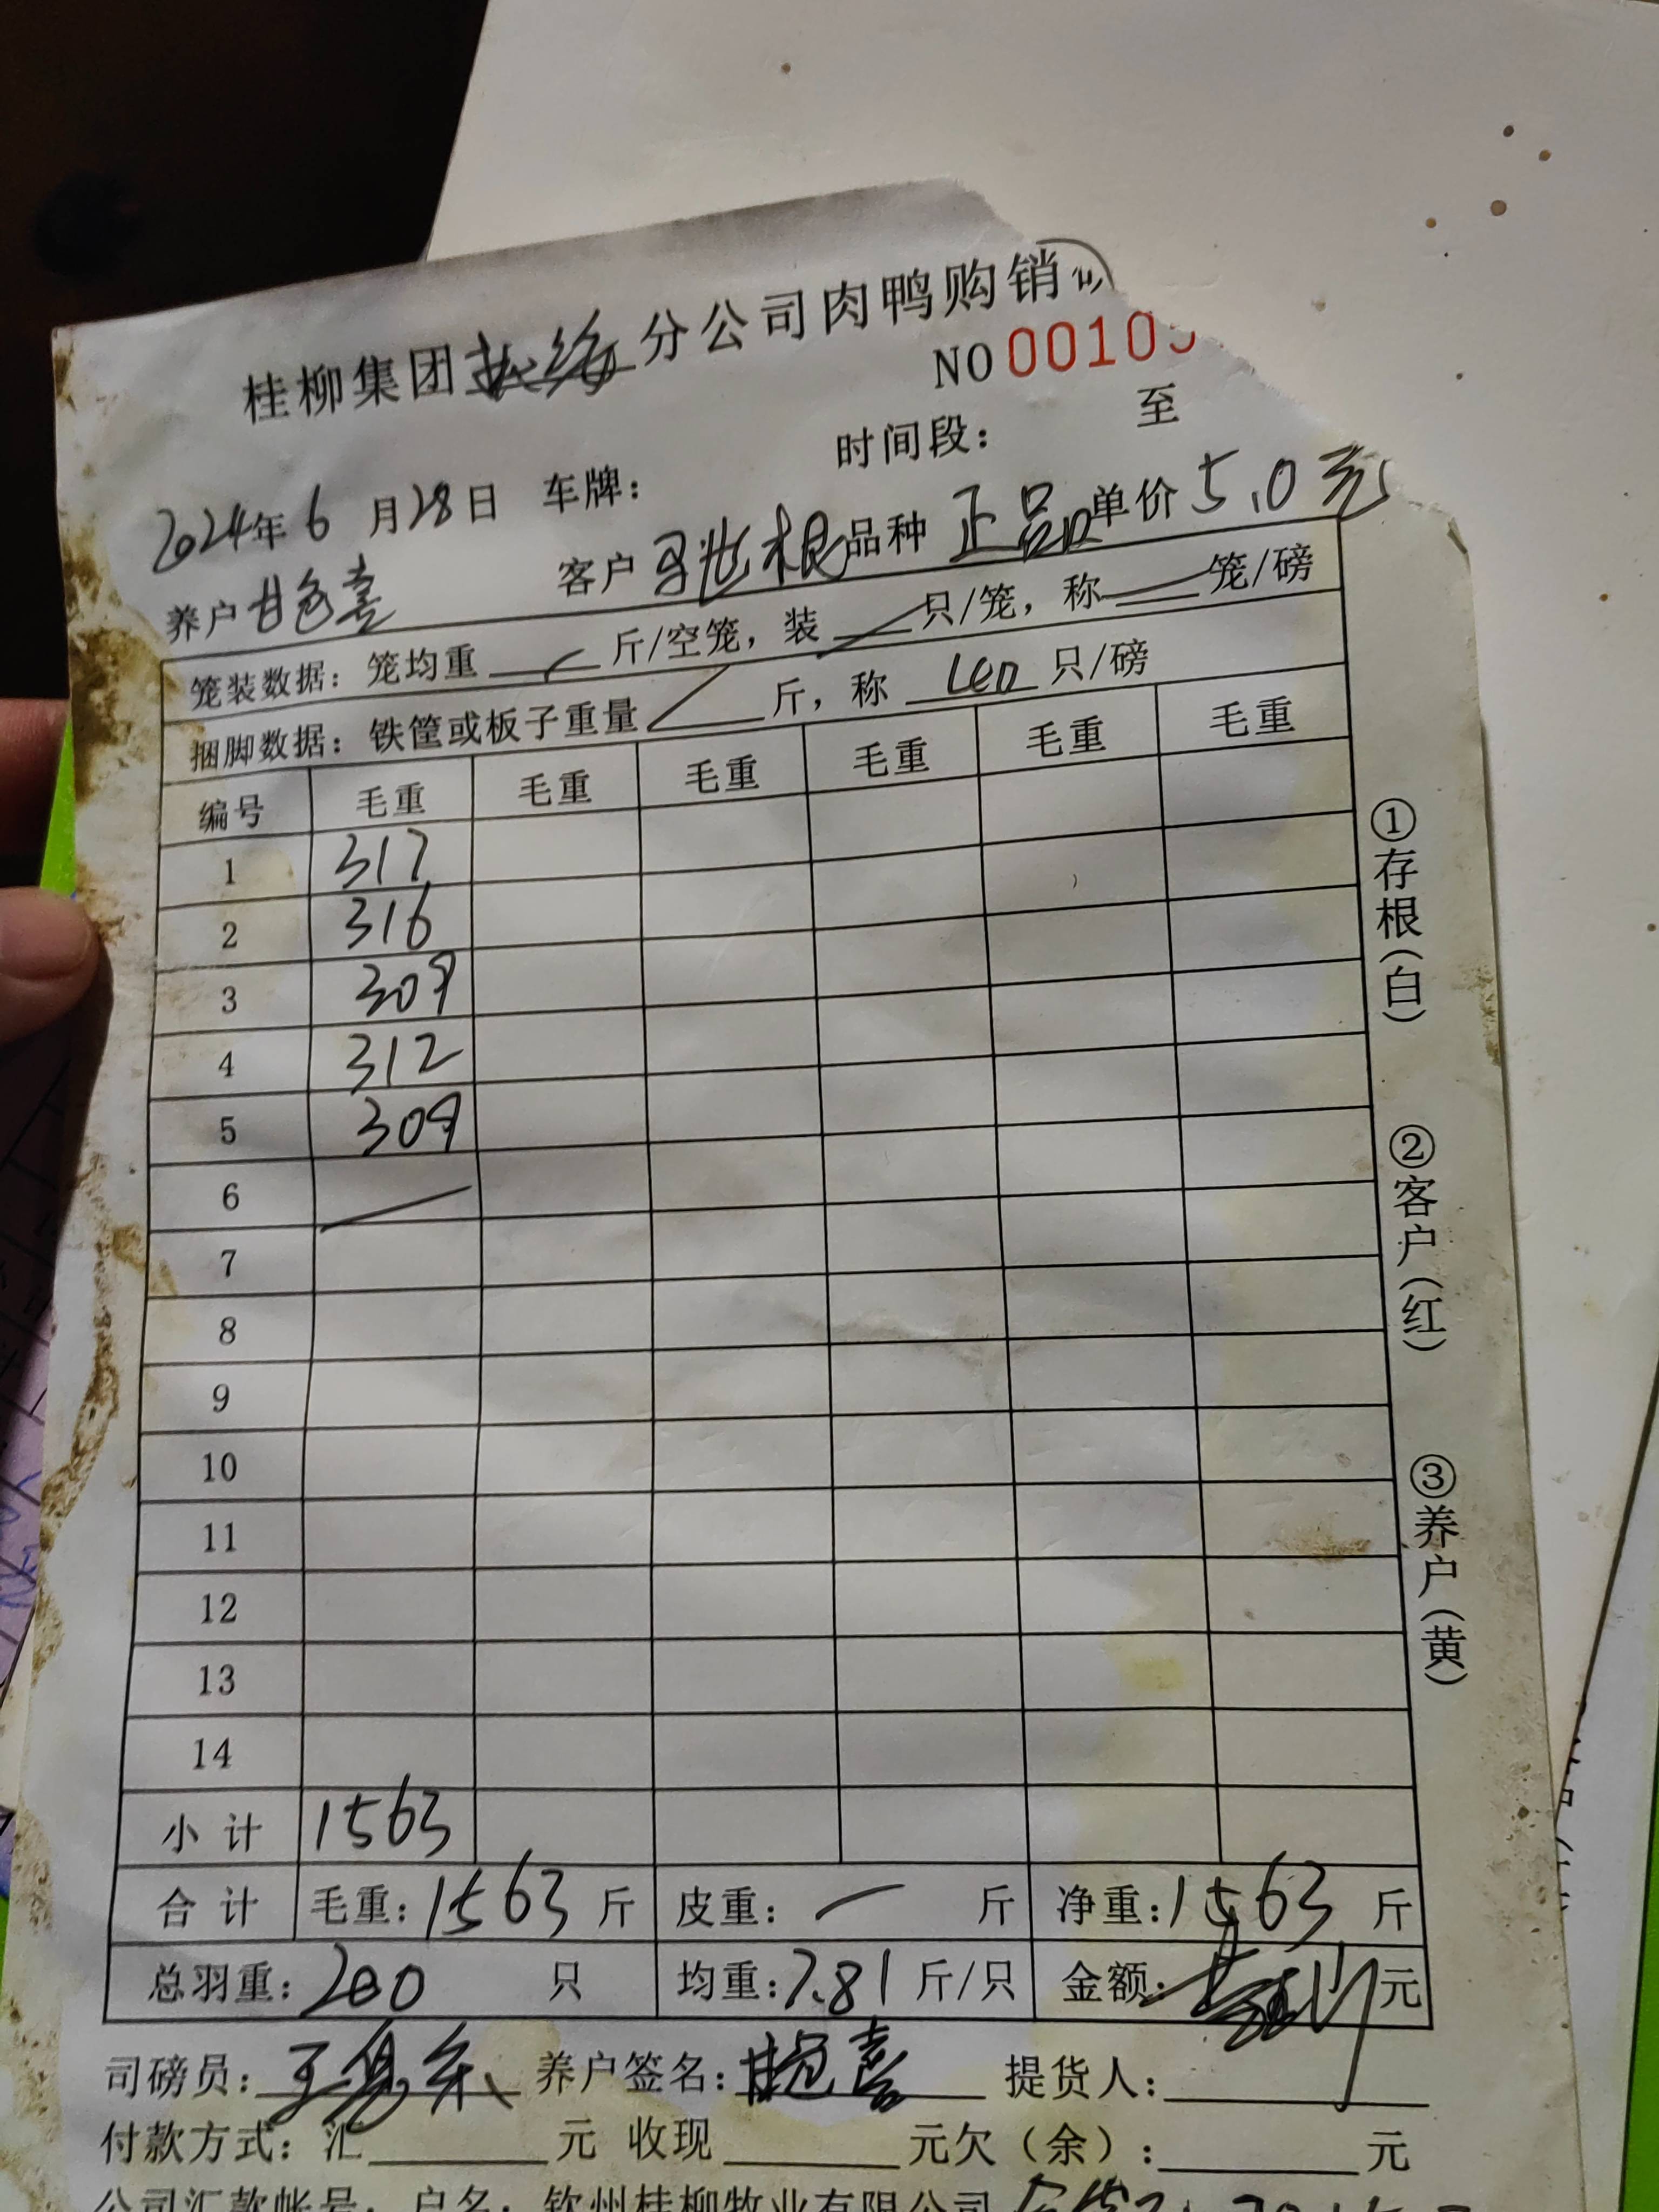 桂柳集团 分公司肉鸭购销
NO 0010
时间段： 至
2024年6月28日 车牌：
养户 甘 喜 客户 根 品种 正品 单价 5.0元
笼装数据：笼均重 斤/空笼，装 只/笼，称 笼/磅
捆脚数据：铁筐或板子重量 斤，称 只/磅
编号 毛重 毛重 毛重 毛重 毛重 毛重
1 317
2 316
3 309
4 312
5 309
6
7
8
9
10
11
12
13
14
小计 1563
合计 毛重：1563斤 皮重：一 斤 净重：1563斤
总羽重：200 只 均重：7.81斤/只 金额： 元
司磅员：王 养户签名：甘 喜 提货人：
付款方式：汇 元 收现 元欠（余）： 元
公司汇款帐号：户名：钦州桂柳牧业有限公司
①存根（白）
②客户（红）
③养户（黄）